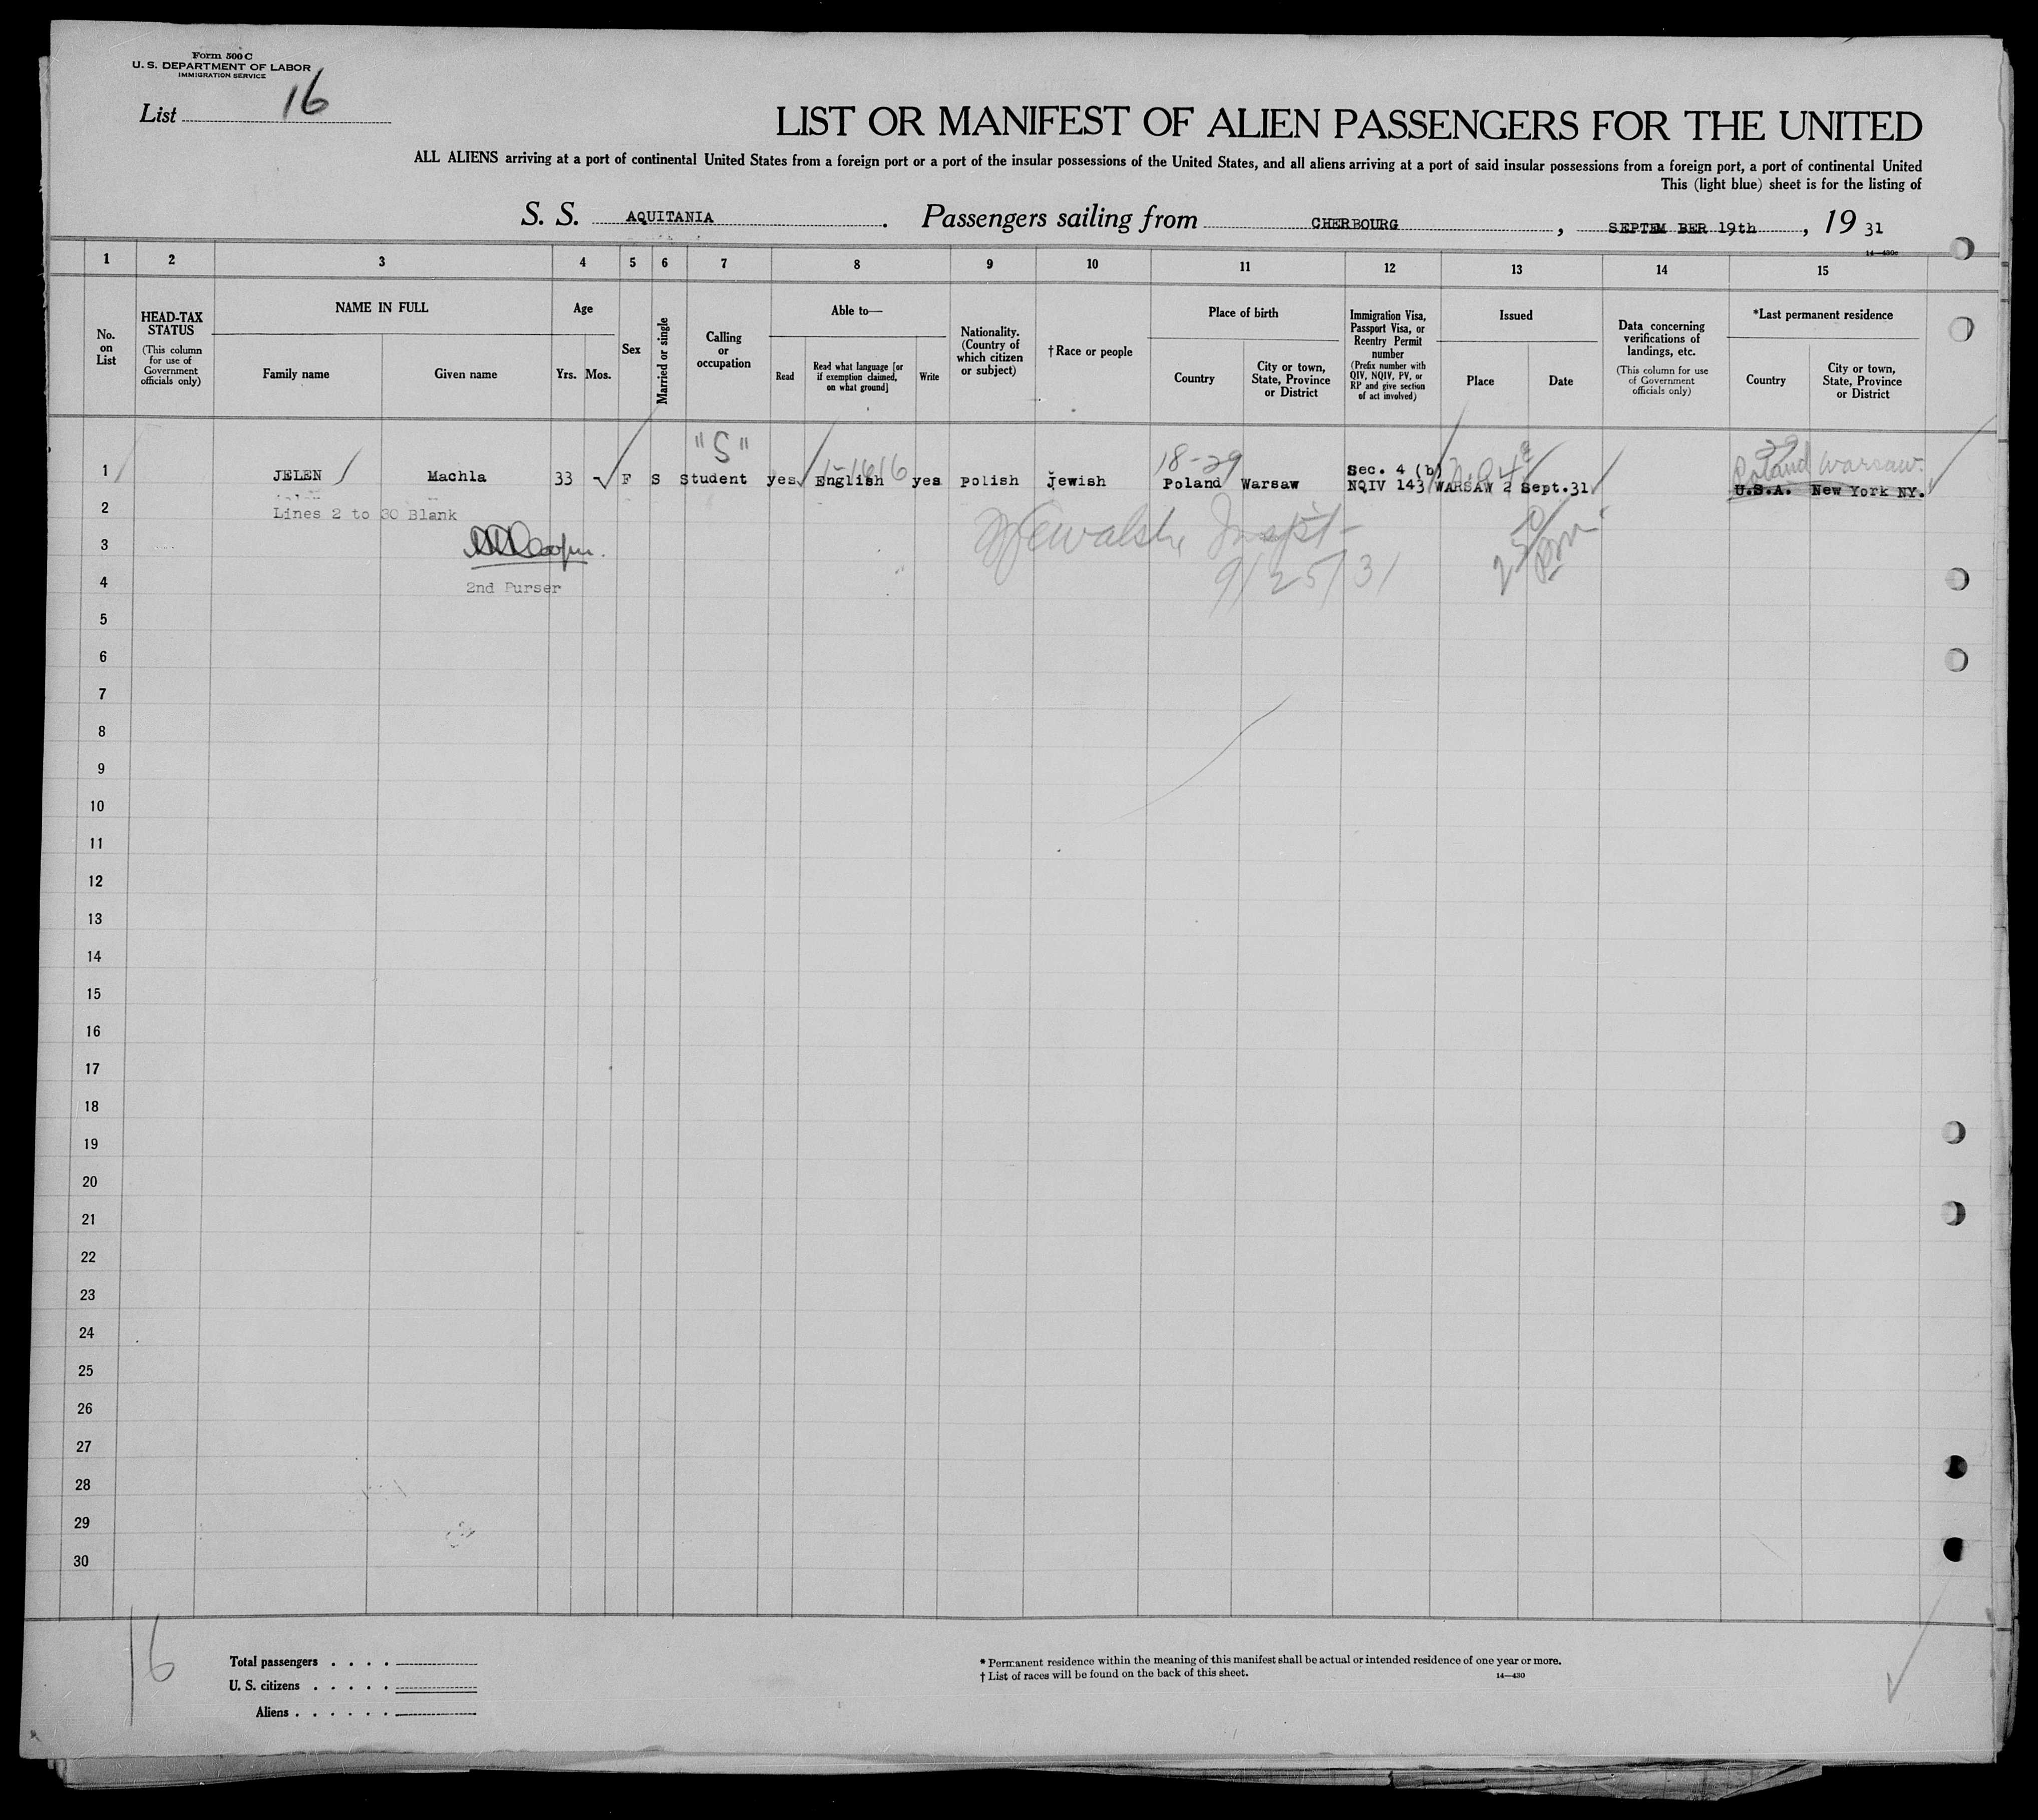 Form 500 C
U. S. DEPARTMENT OF LABOR
IMMIGRATION SERVICE
List 16
LIST OR MANIFEST OF ALIEN PASSENGERS FOR THE UNITED
ALL ALIENS arriving at a port of continental United States from a foreign port or a port of the insular possessions of the United States, and all aliens arriving at a port of said insular possessions from a foreign port, a port of continental United
This (light blue) sheet is for the listing of
S. S. AQUITANIA. Passengers sailing from CHERBOURG, SEPTEM BER 19th, 19 31
14—430c
1 2 3 4 5 6 7 8 9 10 11 12 13 14 15
No. on List
HEAD-TAX STATUS (This column for use of Government officials only)
NAME IN FULL
Family name
Given name
Age
Yrs. Mos.
Sex
Married or single
Calling or occupation
Able to—
Read
Read what language [or if exemption claimed, on what ground]
Write
Nationality. (Country of which citizen or subject)
† Race or people
Place of birth
Country
City or town, State, Province or District
Immigration Visa, Passport Visa, or Reentry Permit number (Prefix number with QIV, NQIV, PV, or RP and give section of act involved)
Issued
Place
Date
Data concerning verifications of landings, etc. (This column for use of Government officials only)
*Last permanent residence
Country
City or town, State, Province or District
"S"
18-29
29
Poland Warsaw.
Sec. 4 (b)
1 JELEN Machla 33 F S Student yes English yes Polish Jewish Poland Warsaw NQIV 143 WARSAW 2 Sept.31 U.S.A. New York NY.
2 Lines 2 to 30 Blank
3
Inspt-
9/25/31
4 2nd Purser
5
6
7
8
9
10
11
12
13
14
15
16
17
18
19
20
21
22
23
24
25
26
27
28
29
30
16
Total passengers . . . .
U. S. citizens . . . . .
Aliens . . . . . .
* Permanent residence within the meaning of this manifest shall be actual or intended residence of one year or more.
† List of races will be found on the back of this sheet.
14—430